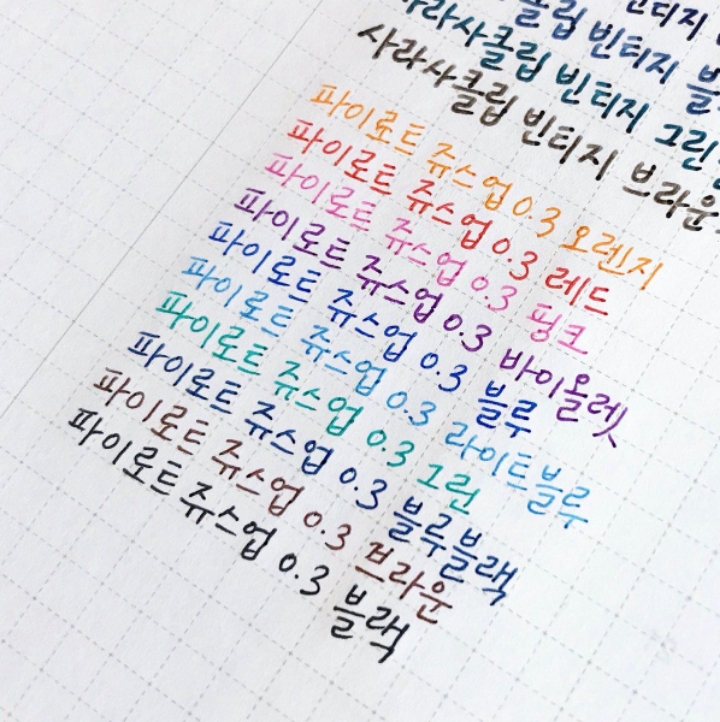 빈티지
클럽 빈티지 블
사라사클립 빈티지 그린
사라사클립 빈티지 브라운
파이로트 쥬스업 0.3 오렌지
파이로트 쥬스업 0.3 레드
파이로트 쥬스업 0.3 핑크
파이로트 쥬스업 0.3 바이올렛
파이로트 쥬스업 0.3 블루
파이로트 쥬스업 0.3 라이트블루
파이로트 쥬스업 0.3 그린
파이로트 쥬스업 0.3 블루블랙
파이로트 쥬스업 0.3 브라운
파이로트 쥬스업 0.3 블랙